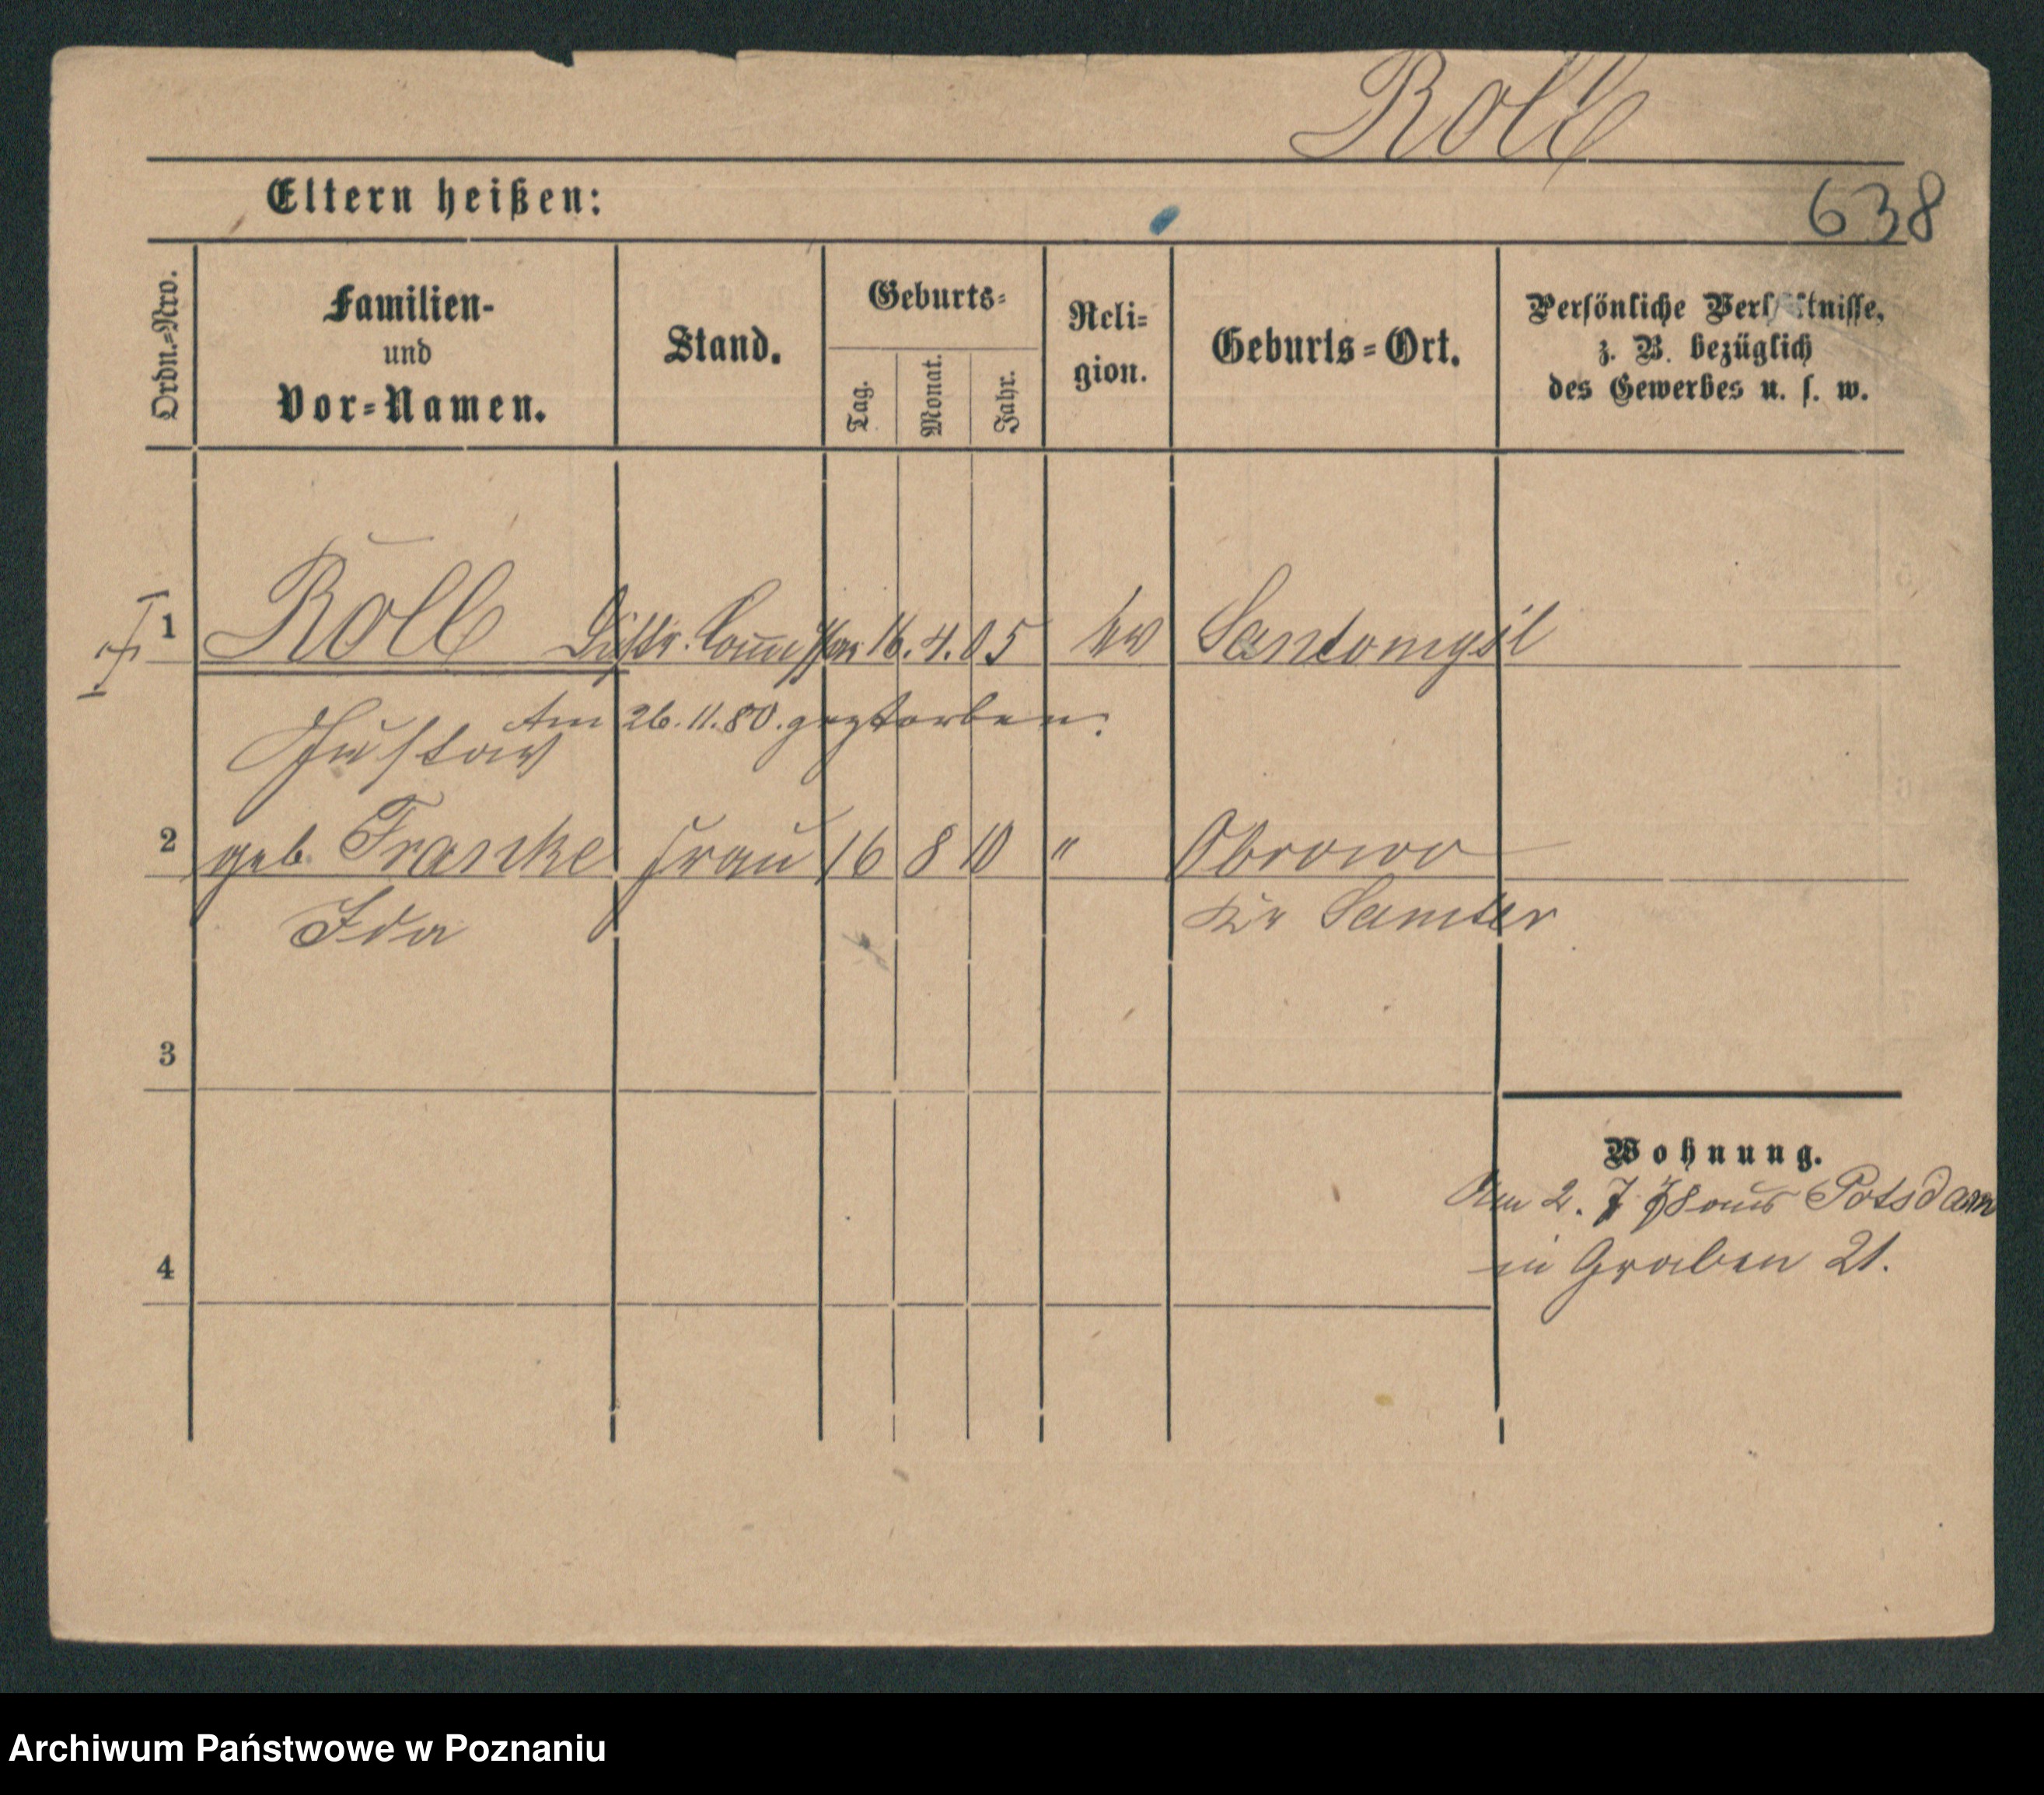 Roll
Eltern heißen:
638
Ordn.=Nro.
Familien-
und
Vor=Namen.
Stand.
Geburts=
Tag.
Monat.
Jahr.
Reli=
gion.
Geburts=Ort.
Persönliche Verhältnisse,
z. B. bezüglich
des Gewerbes u. s. w.
1 Roll Distr. 16. 4. 05 ev Santomysl
Am 26. 11. 80. gestorben.
Gustav
2 geb. Franke Frau 16 8 10 " Obrowo
Ida Kr Samter
3
Wohnung.
Am 2. 7 78 aus Potsdam
4
in Graben 21.
Archiwum Państwowe w Poznaniu